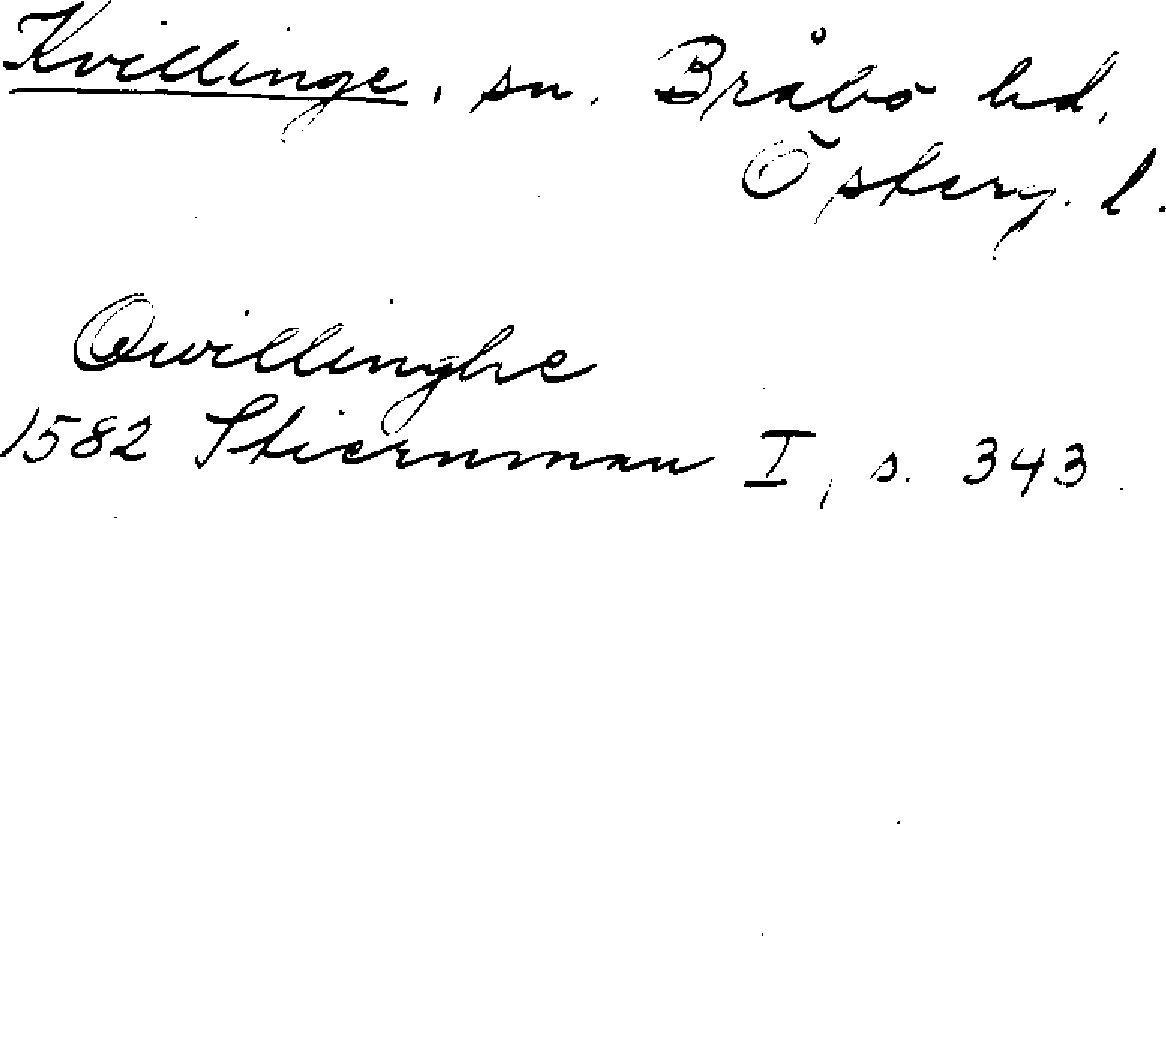 Kvillinge, sn. Bråbo hd.
Österg. l.
Qwillinghe
1582 Stiernman I, s. 343.